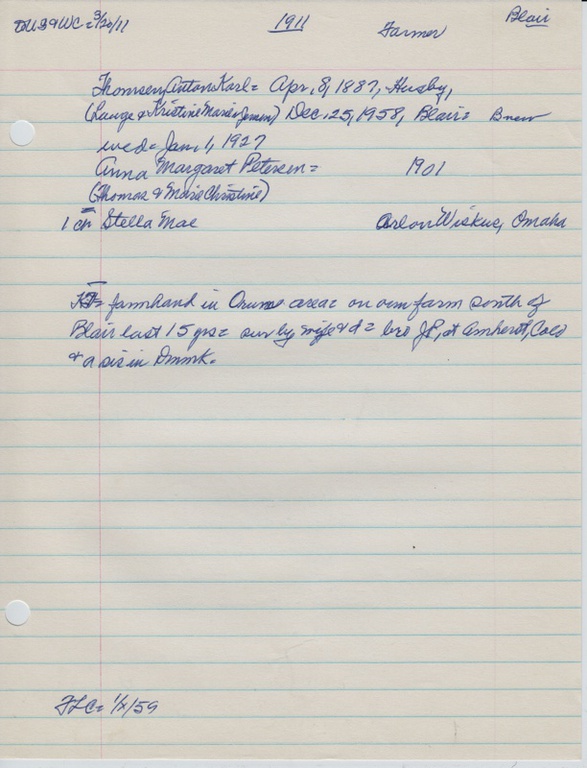 US & WC = 3/30/11 1911 Farmer Blair
Thomsen, Anton Karl = Apr, 8, 1887, Husby,
(Lauge & Kristine Marie Jensen) Dec. 25, 1958, Blair = Bnew
wed = Jan. 1, 1927
Anna Margaret Petersen = 1901
(Thomas & Marie Christine)
1 ch Stella Mae Arlon Wiskus, Omaha
= farmhand in Orum area = on own farm south of
Blair last 15 yrs = sur by wife & d = bro J P, at Amherst, Colo
& a sis in Dnmk.
FLC = 1/1/59